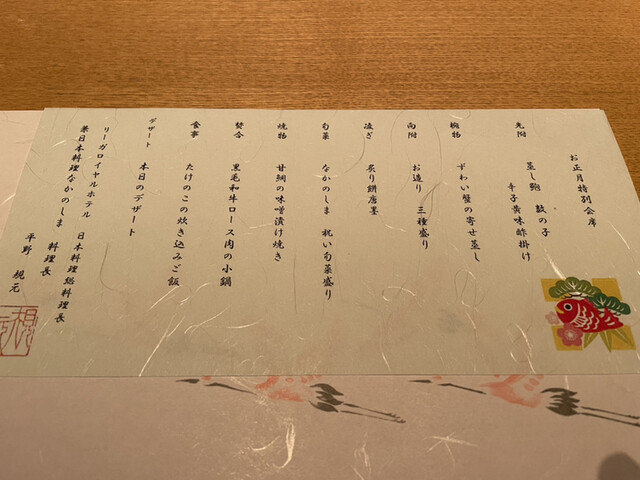 お正月特別会席
先附
蒸し鮑 数の子
辛子黄味酢掛け
椀物
ずわい蟹の寄せ蒸し
向附
お造り 三種盛り
凌ぎ
炙り餅唐墨
旬菜
なかのしま 祝い旬菜盛り
焼物
甘鯛の味噌漬け焼き
賛合
黒毛和牛ロース肉の小鍋
食事
たけのこの炊き込みご飯
デザート
本日のデザート
リーガロイヤルホテル 日本料理総料理長
兼日本料理なかのしま 料理長
平野 規元